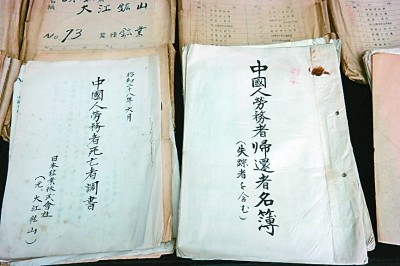 大江鉱山
No 73 業種 鉱業
昭和二十八年六月
中國人勞務者死亡者調書
日本鉱業株式會社
(元 大江鉱山)
中國人勞務者帰還者名簿
(失踪者を含む)